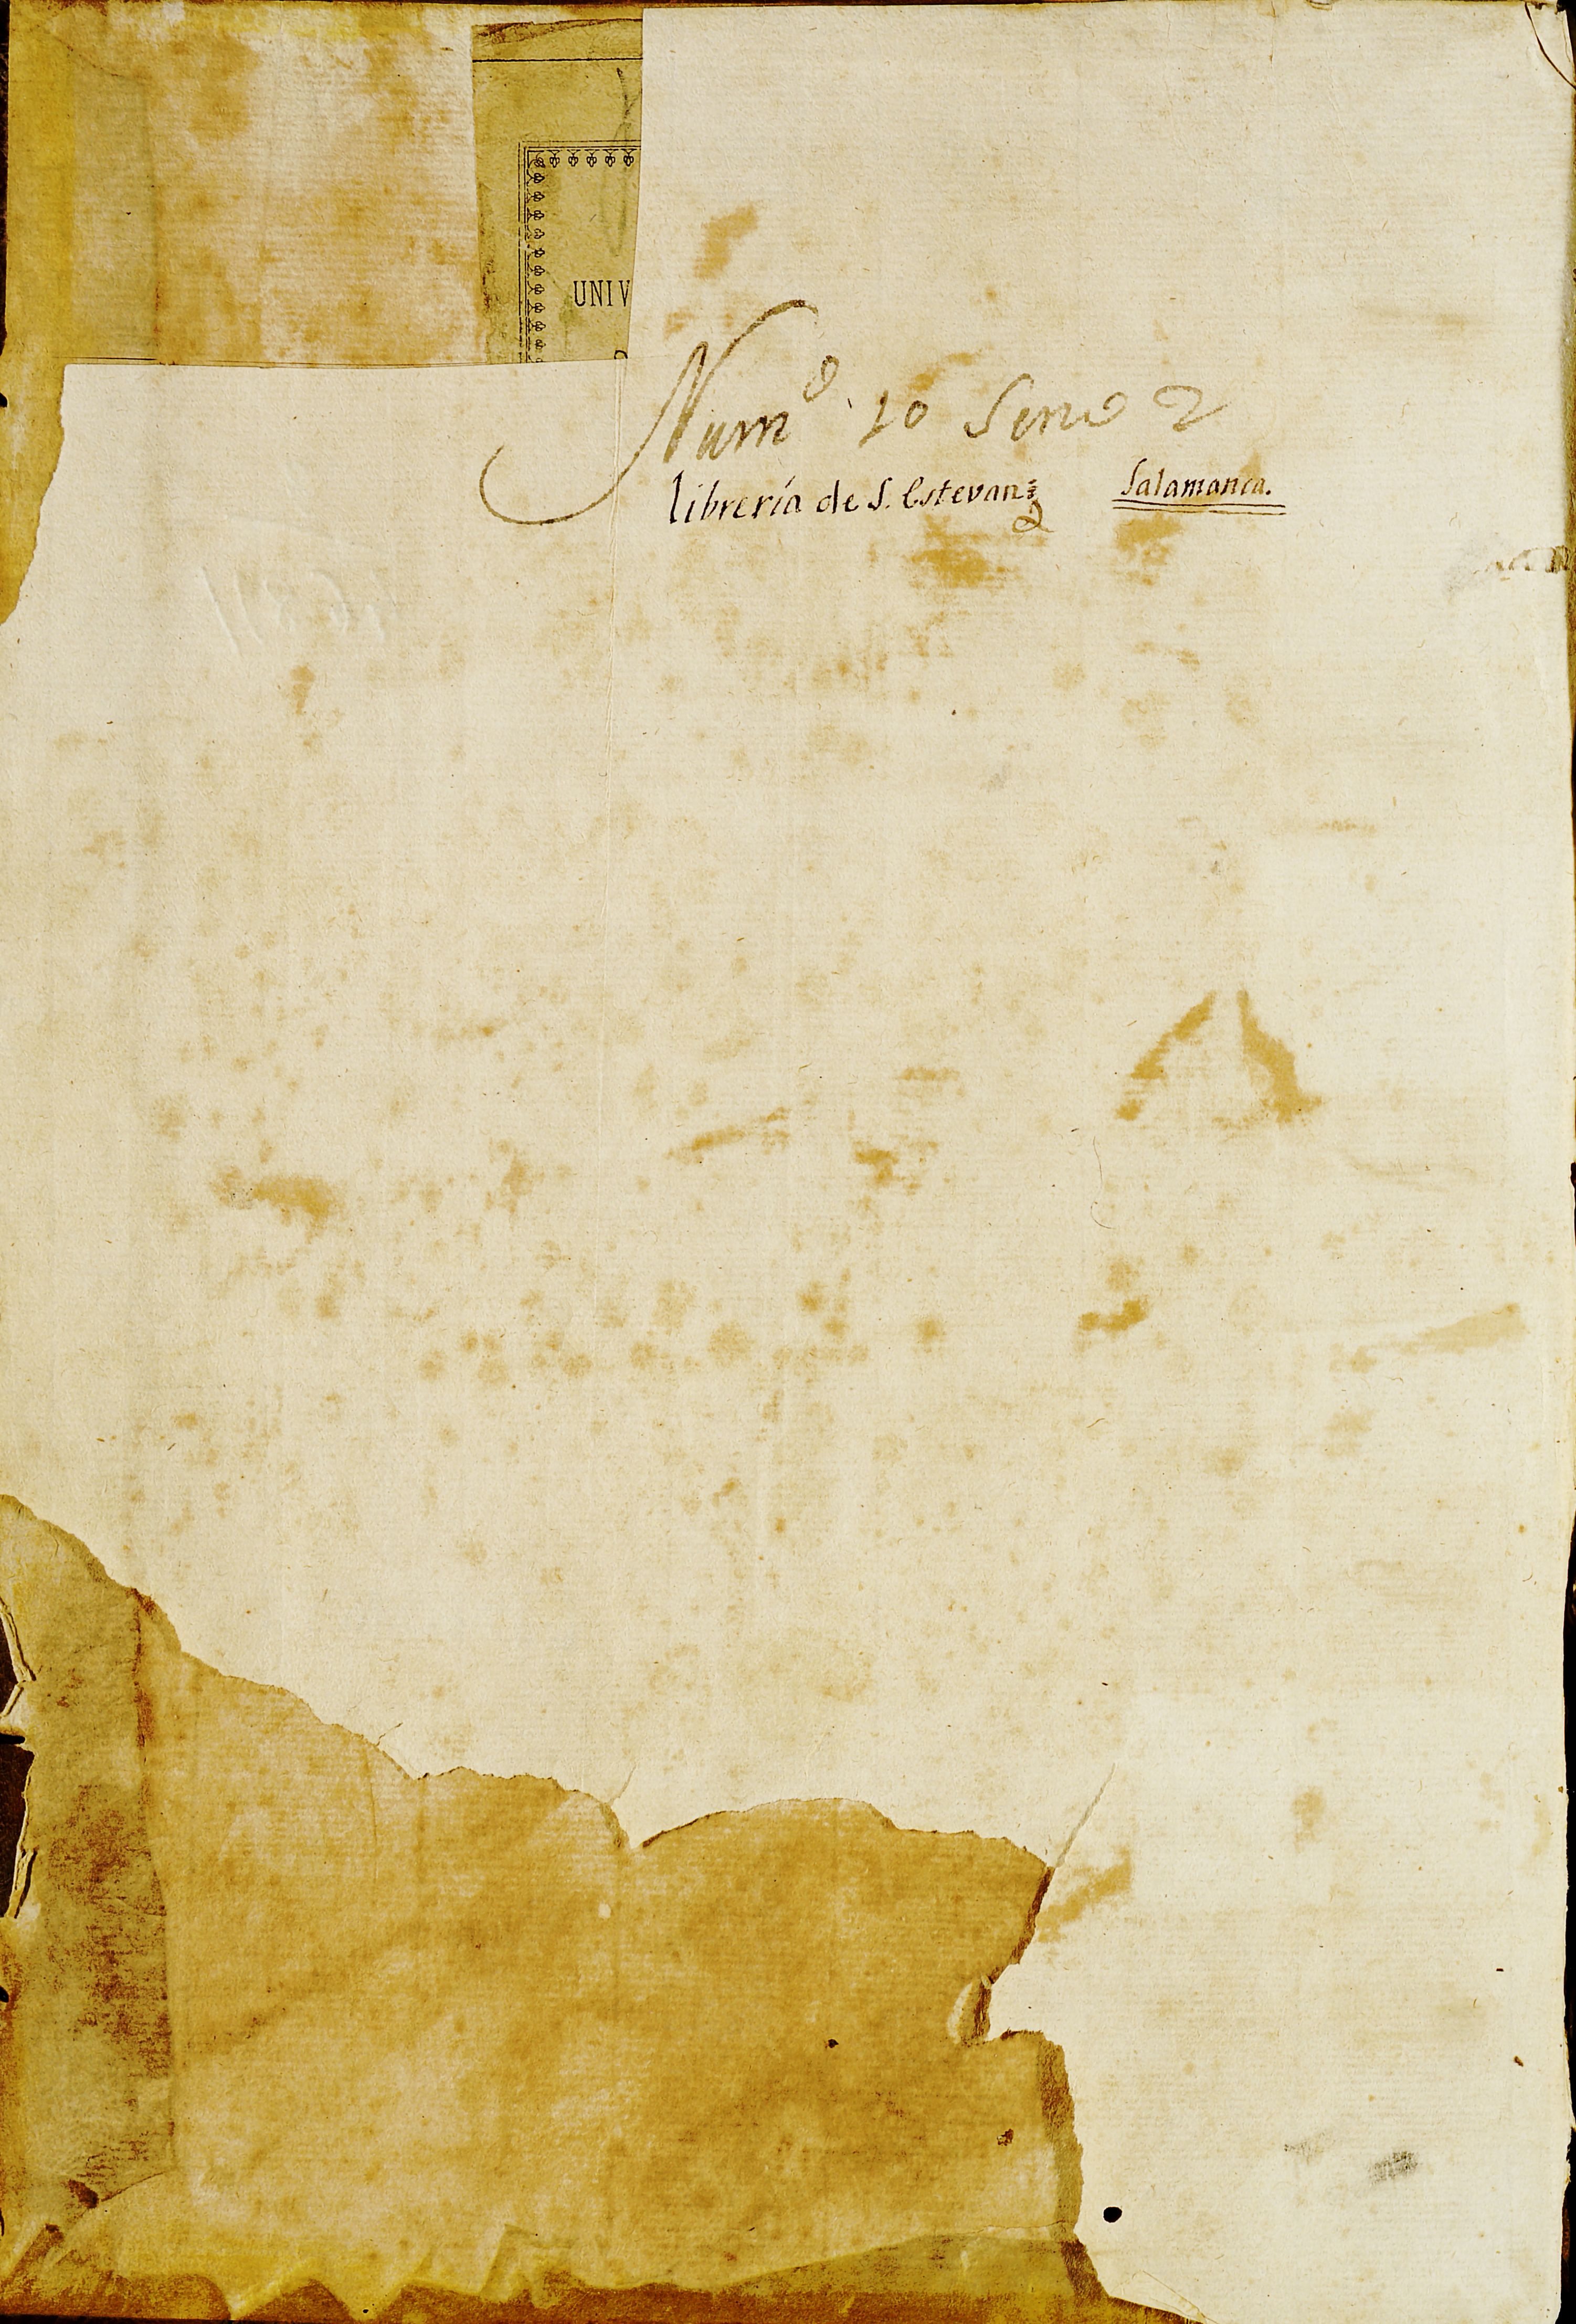 UNIV
Numº 10 Serie 2
librería de S. Estevan
Salamanca.